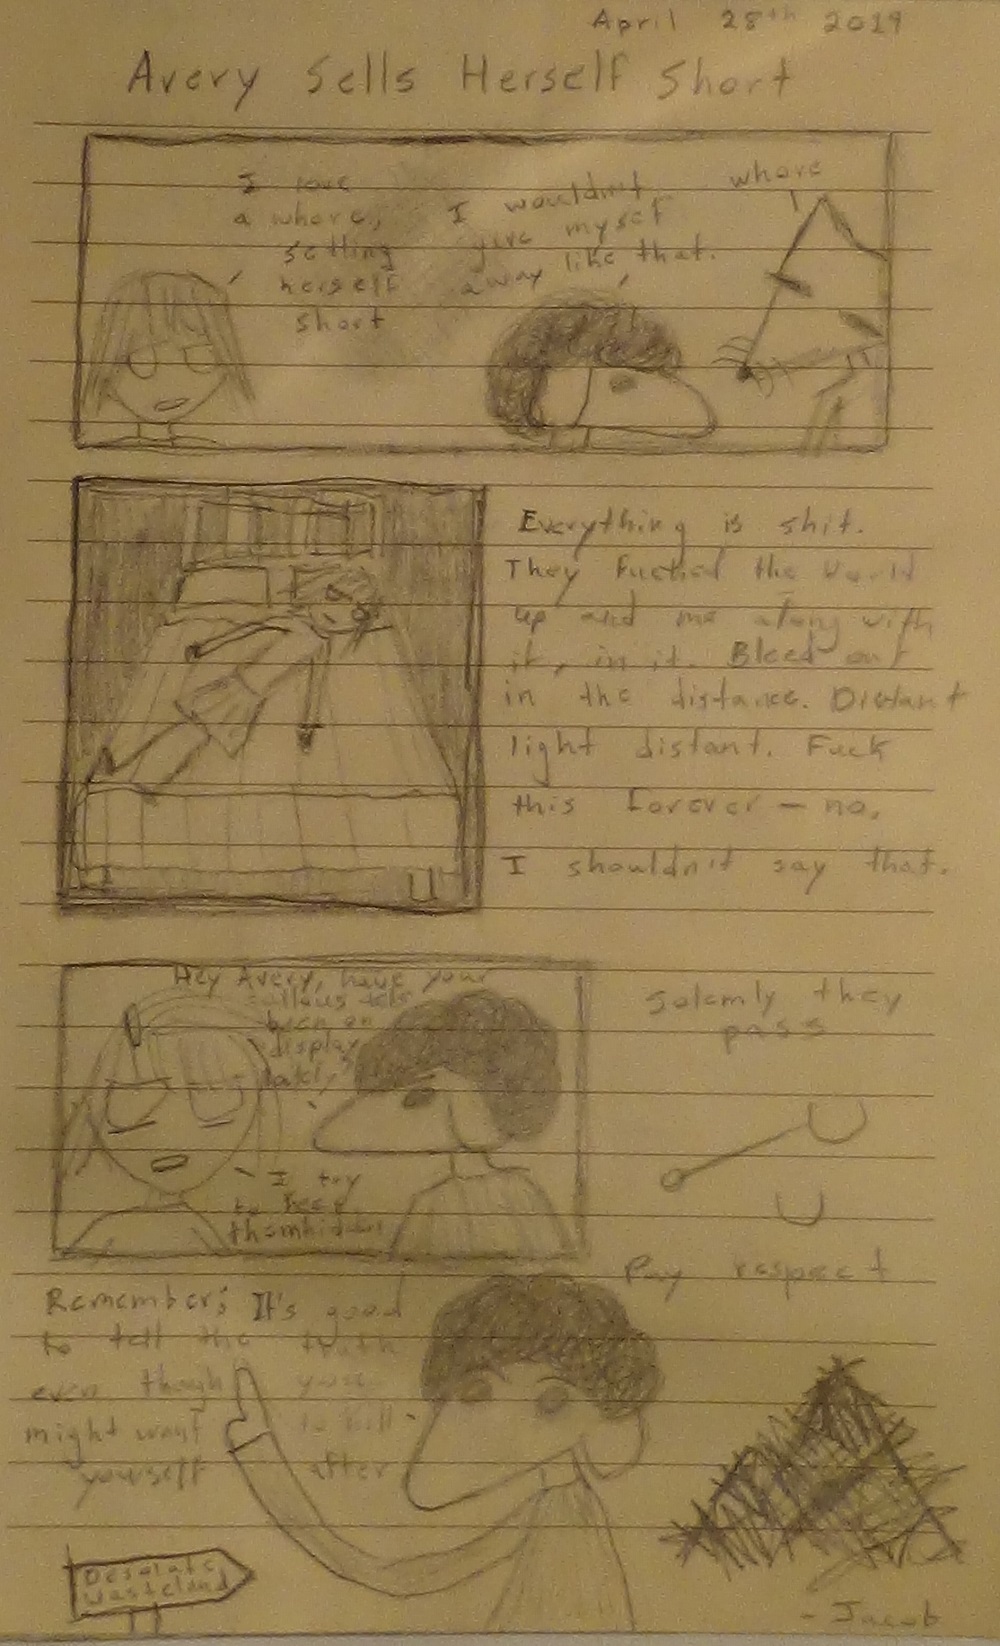 April 28th 2019
Avery Sells Herself Short
I love
a whore,
selling
herself
short
I wouldn't
give myself
away like that.
whore
Everything is shit.
They fucked the world
up and me along with
it, in it. Bleed out
in the distance. Distant
light distant. Fuck
this forever — no,
I shouldn't say that.
Hey Avery, have your
been on
display
I try
to keep
Solemly they
pass
Pay respect
Remember: It's good
to tell the truth
even though you
might want to kill
yourself after
Desolate
Wasteland
- Jacob